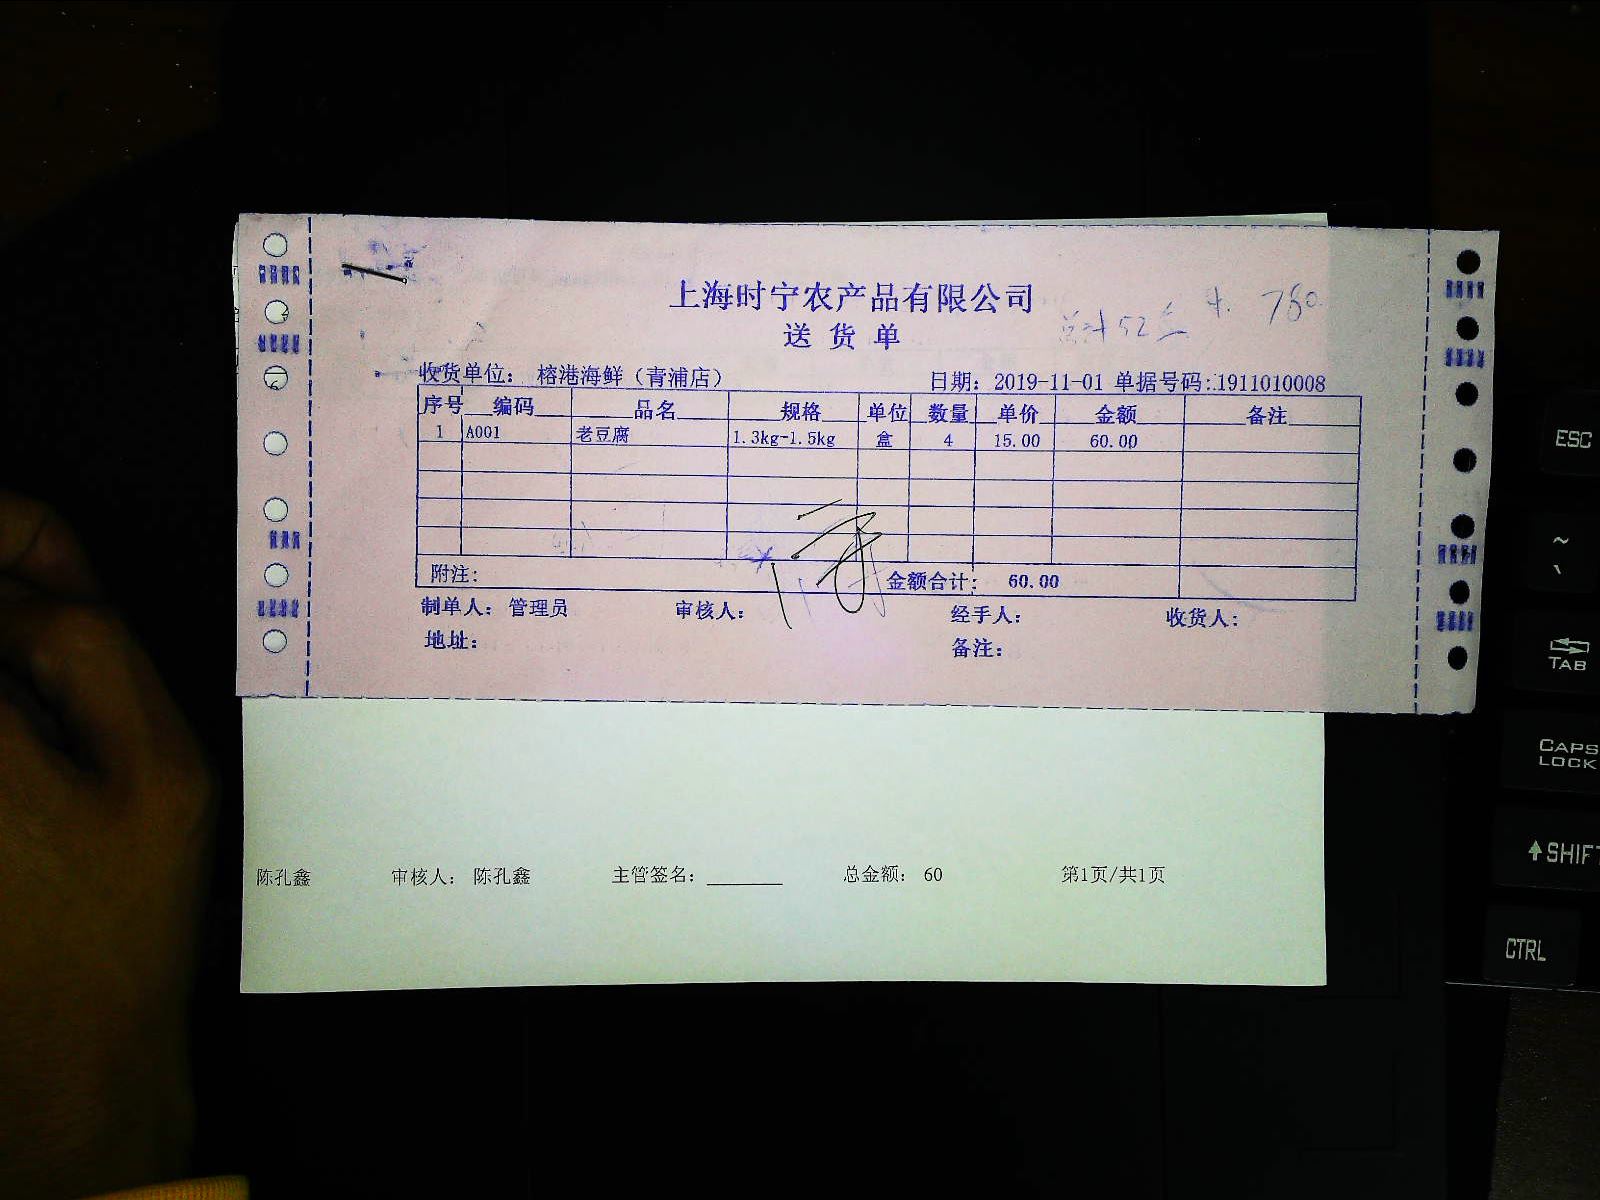 上海时宁农产品有限公司
送货单
总计52盒 780
收货单位： 榕港海鲜（青浦店） 日期：2019-11-01 单据号码:.1911010008
序号 编码 品名 规格 单位 数量 单价 金额 备注
1 A001 老豆腐 1.3kg-1.5kg 盒 4 15.00 60.00
附注: 金额合计: 60.00
制单人: 管理员 审核人: 经手人: 收货人:
地址: 备注:
陈孔鑫 审核人： 陈孔鑫 主管签名：________ 总金额： 60 第1页/共1页
ESC
~
TAB
CAPS LOCK
SHIFT
CTRL